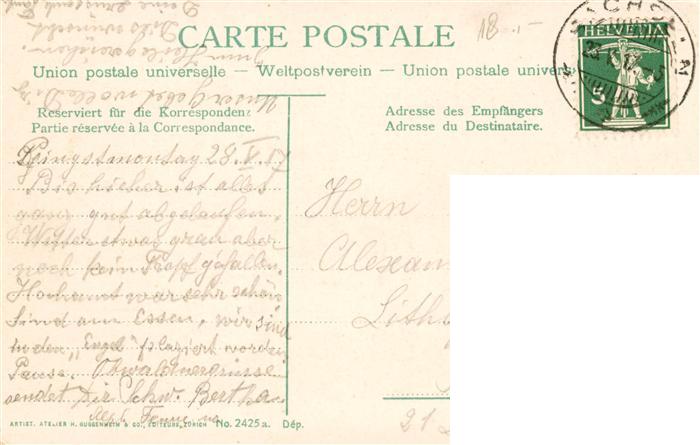 CARTE POSTALE
18.-
HELVETIA
5
Union postale universelle – Weltpostverein – Union postale univers
Reserviert für die Korrespondenz
Partie réservée à la Correspondance.
Adresse des Empfängers
Adresse du Destinataire.
Pfingstmontag 28. V. 17
Bis hieher ist alles
ganz gut abgelaufen,
Wetter etwas grau aber
noch kein Tropf gefallen.
Hochamt war sehr schön
Sind am Essen, wir sind
in den "Engel" plaziert worden
Pause. Obwaldnergrüsse
sendet dir Schw. Bertha
Herrn
Alexan
Lith
21
ARTIST. ATELIER H. GUGGENHEIM & CO., EDITEURS, ZÜRICH No. 2425 a. Dép.